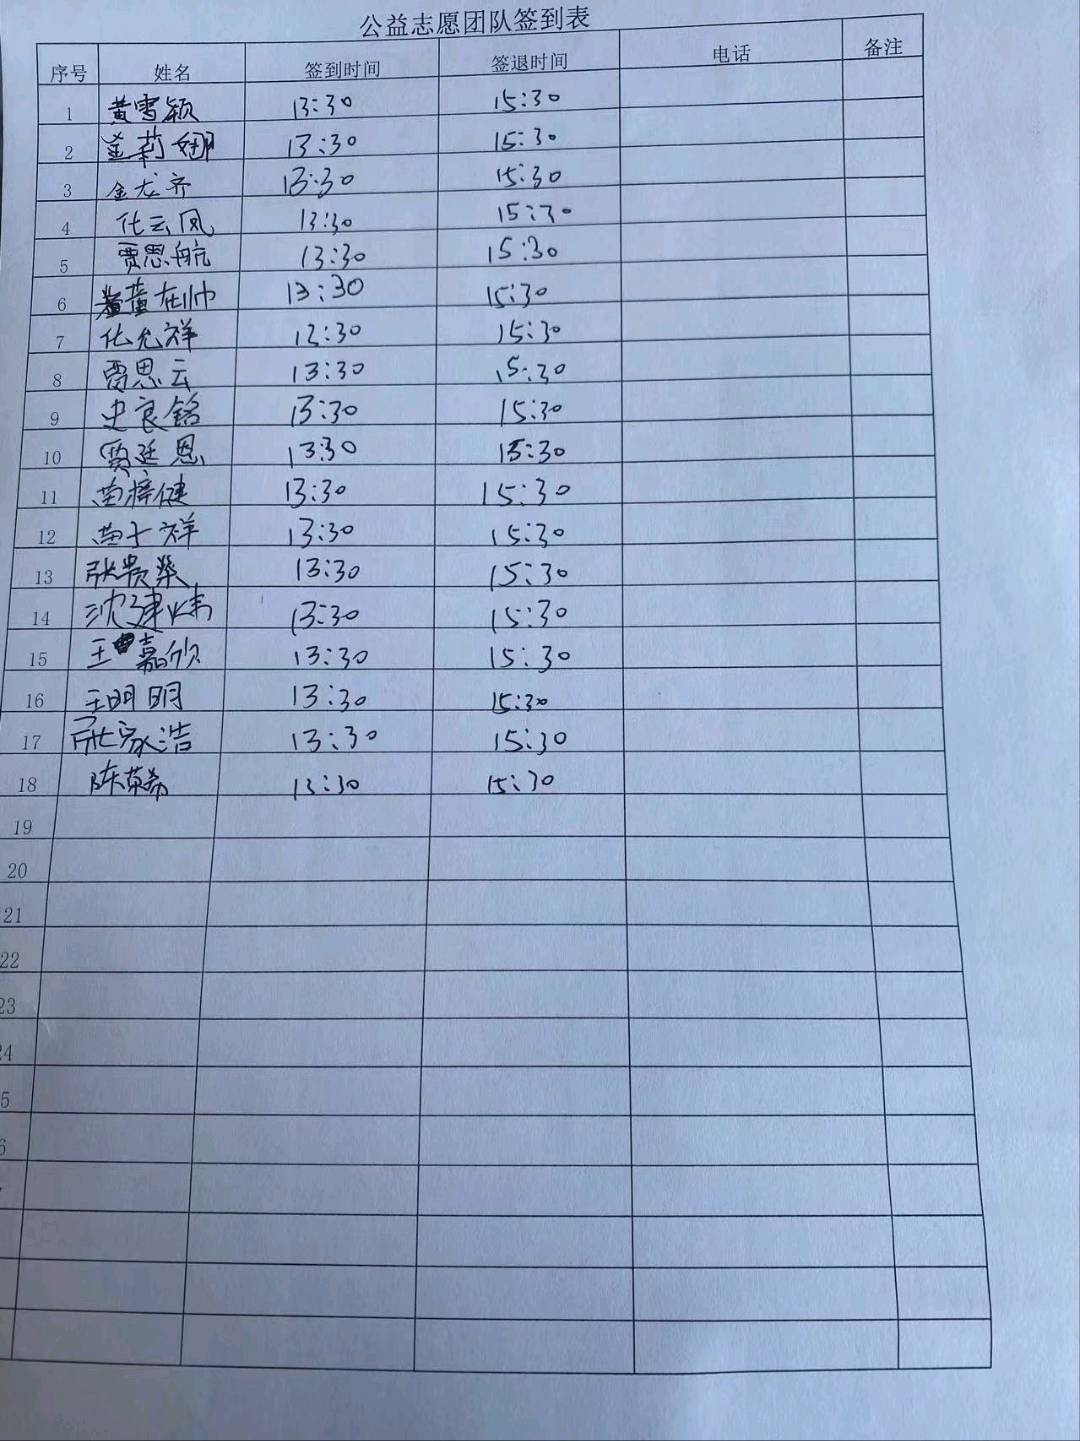 公益志愿团队签到表
序号 姓名 签到时间 签退时间 电话 备注
1 黄雪颖 13:30 15:30
2 莉娜 13:30 15:30
3 金龙齐 13:30 15:30
4 化云凤 13:30 15:30
5 贾思航 13:30 15:30
6 黄在帅 13:30 15:30
7 化允祥 13:30 15:30
8 贾思云 13:30 15:30
9 史良铭 13:30 15:30
10 贾廷恩 13:30 15:30
11 苗梓健 13:30 15:30
12 苗子祥 13:30 15:30
13 张贵燊 13:30 15:30
14 沈建炜 13:30 15:30
15 王嘉欣 13:30 15:30
16 王明明 13:30 15:30
17 家浩 13:30 15:30
18 陈 13:30 15:30
19
20
21
22
23
24